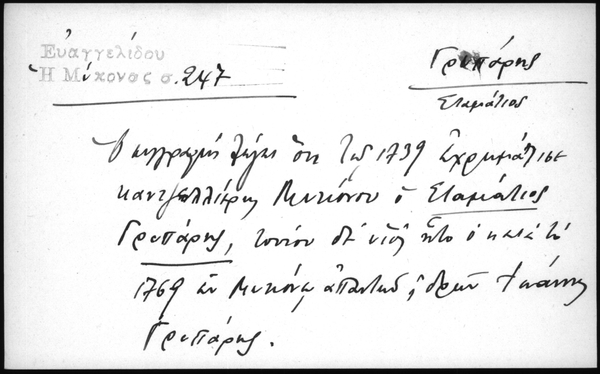 Ευαγγελίδου
Η Μύκονος σ. 247
Γρυπάρης
Σταμάτιος
Ο συγγραφεύς λέγει ότι τω 1739 εχρημάτισε
καντζελλιέρης Μυκόνου ο Σταμάτιος
Γρυπάρης, τούτου δε υιός ήτο ο κατά το
1769 εν Μυκόνω Ιωάννης
Γρυπάρης.